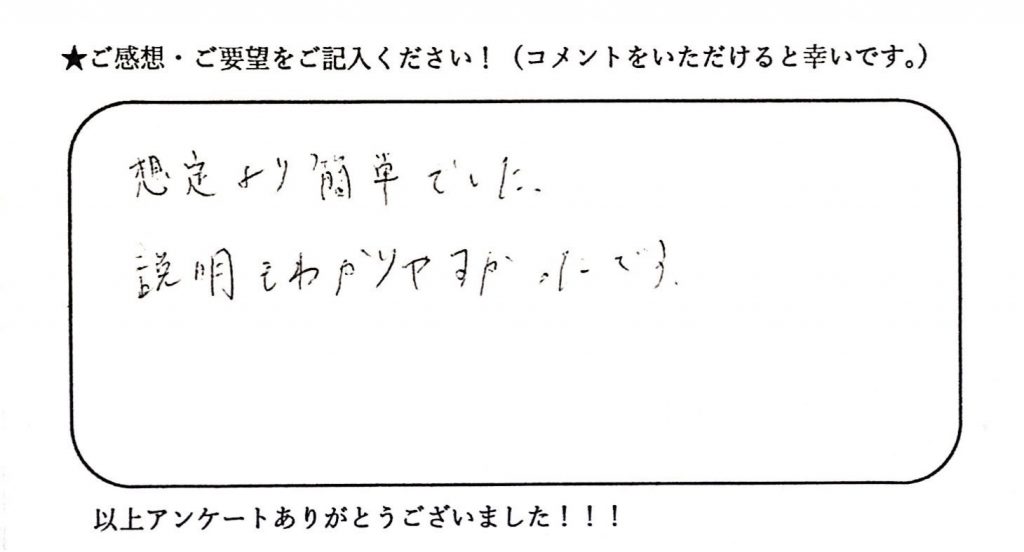 ★ご感想・ご要望をご記入ください！（コメントをいただけると幸いです。）
想定より簡単でした。
説明もわかりやすかったです。
以上アンケートありがとうございました！！！